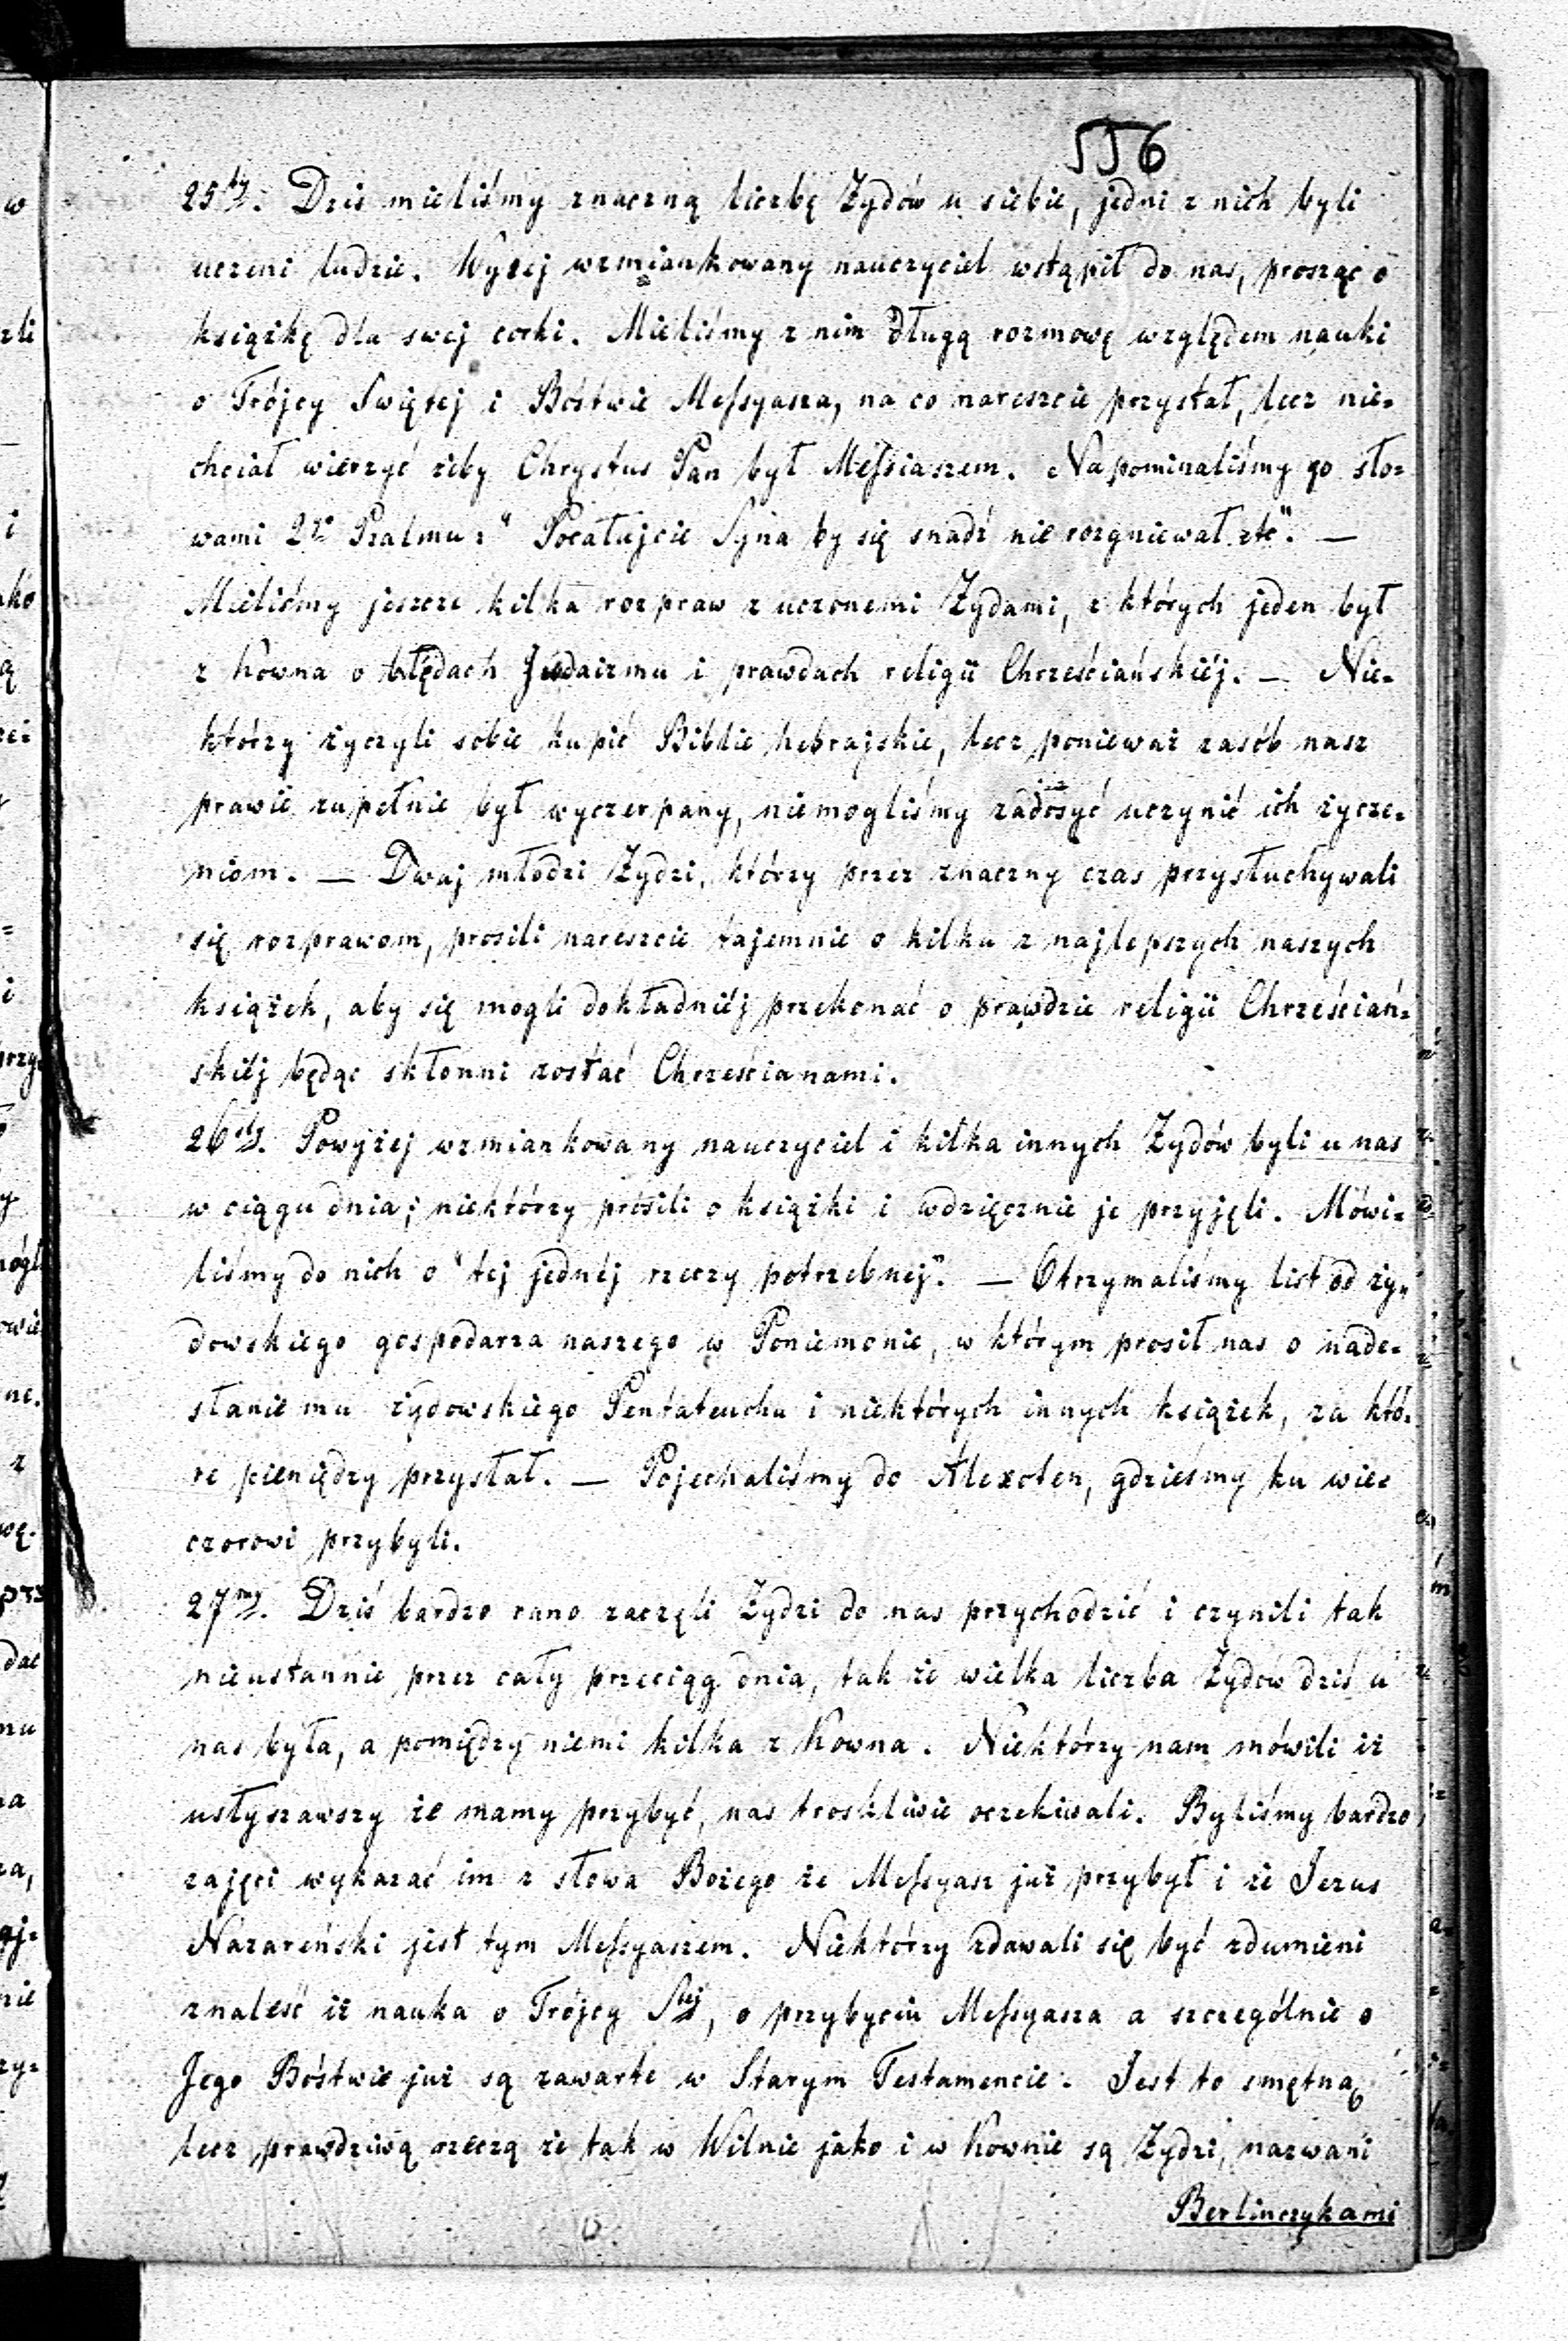 556
25ty. Dziś mieliśmy znaczną liczbę Żydów u siebie, jedni z nich byli
uczeni ludzie. Wyżej wzmiankowany nauczyciel wstąpił do nas, prosząc o
książkę dla swej corki. Mieliśmy z nim długą rozmowę względem nauki
o Trójcy Swiętej i Bóstwie Messyasza, na co nareszcie przystał, lecz nie=
chciał wierzyć żeby Chrystus Pan był Messiaszem. Napominaliśmy go sło=
wami 2go Psalmu: "Pocałujcie Syna by się snadź nie rozgniewał etc". —
Mieliśmy jeszcze kilka rozpraw z uczonemi Żydami, z których jeden był
z Kowna o błędach Judaizmu i prawdach religii Chrześciańskiéj. — Nie=
którzy życzyli sobie kupić Biblie hebrajskie, lecz ponieważ zasób nasz
prawie zupełnie był wyczerpany, niemogliśmy zadosyć uczynić ich życze=
niom. — Dwaj młodzi Żydzi, którzy przez znaczny czas przysłuchywali
się rozprawom, prosili nareszcie tajemnie o kilka z najlepszych naszych
książek, aby się mogli dokładniéj przekonać o prawdzie religii Chrześciań=
skiéj będąc skłonni zostać Chrześcianami.
26ty. Powyżej wzmiankowany nauczyciel i kilka innych Żydów byli u nas
w ciągu dnia; niektórzy prosili o książki i wdzięcznie je przyjęli. Mówi=
liśmy do nich o "tej jednéj rzeczy potrzebnej". — Otrzymaliśmy list od ży=
dowskiego gospodarza naszego w Poniemonie, w którym prosił nas o nade=
słanie mu żydowskiego Pentateuchu i niektórych innych książek, za któ=
re pieniędzy przysłał. — Pojechaliśmy do Alexoten, gdzieśmy ku wie=
czorowi przybyli.
27my. Dziś bardzo rano zaczęli Żydzi do nas przychodzić i czynili tak
nieustannie przez cały przeciąg dnia, tak że wielka liczba Żydów dziś u
nas była, a pomiędzy niemi kilka z Kowna. Niektórzy nam mówili iż
usłyszawszy że mamy przybyć, nas troskliwie oczekiwali. Byliśmy bardzo
zajęci wykazać im z słowa Bożego że Messyasz już przybył i że Jezus
Nazareński jest tym Messyaszem. Niektórzy zdawali się być zdumieni
znaleść iż nauka o Trójcy Stéj, o przybyciu Messyasza a szczególnie o
Jego Bóstwie już są zawarte w Starym Testamencie. Jest to smętną
lecz prawdziwą rzeczą że tak w Wilnie jako i w Kownie są Żydzi, nazwani
Berlinczykami